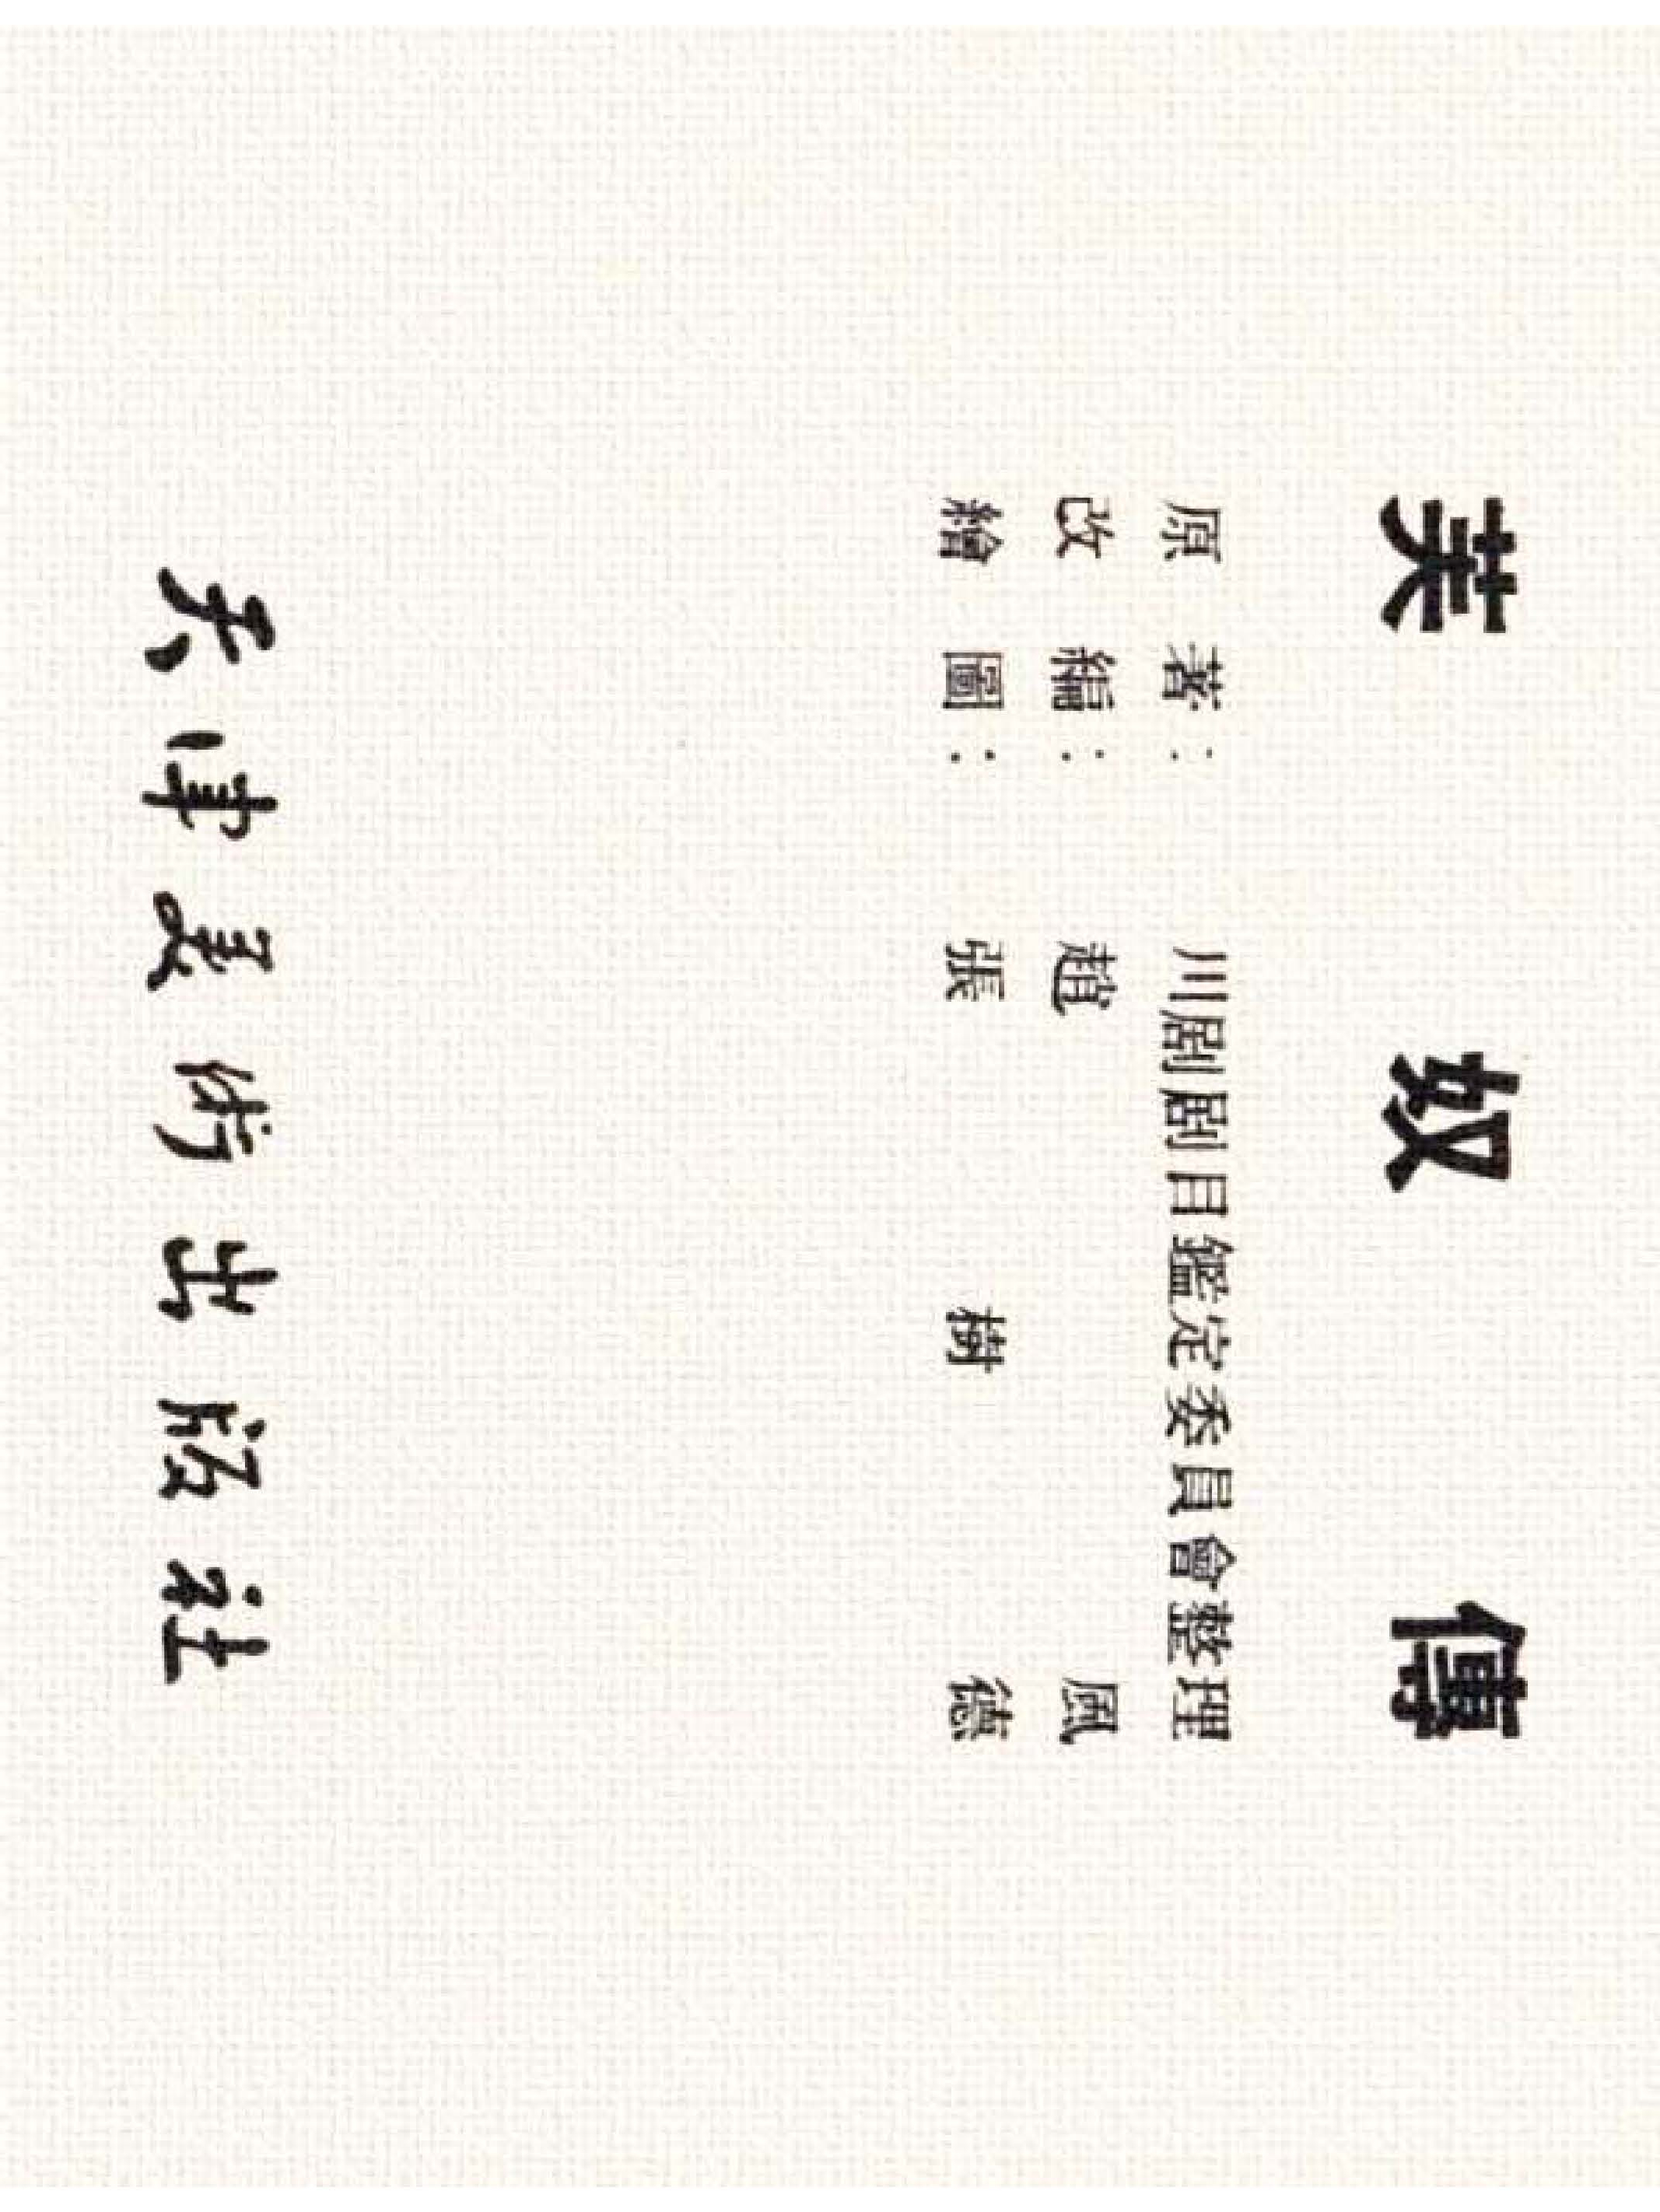 芙奴傳
原著：川剧剧目鑑定委員會整理
改編：趙風
繪圖：張樹德
天津美術出版社